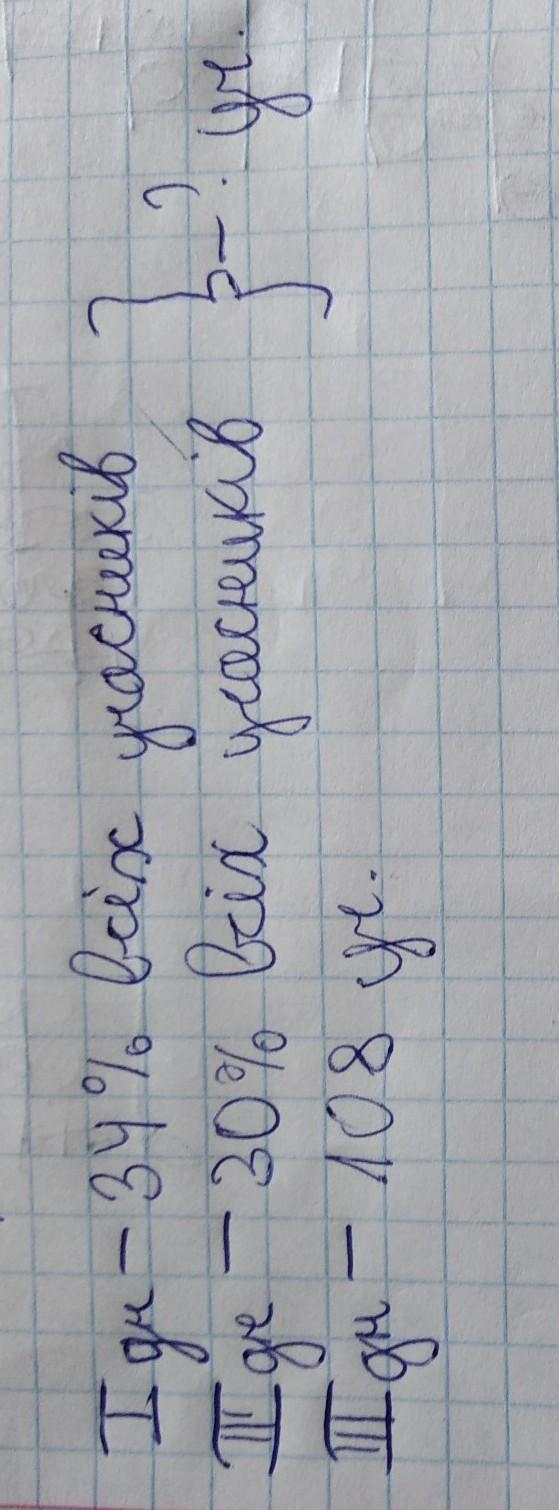 I дн - 34% всіх учасників
II дн - 30% всіх учасників } - ? уч.
III дн - 108 уч.